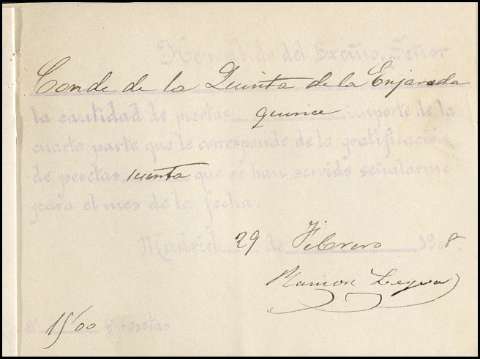 He recibido del Excmo. Señor
Conde de la Quinta de la Enjarada
la cantidad de pesetas quince importe de la
cuarta parte que le corresponde de la gratificación
de pesetas que se han servido señalarme
para el mes de la fecha.
Madrid 29 de Febrero 1908.
Ramon
15'00 pesetas